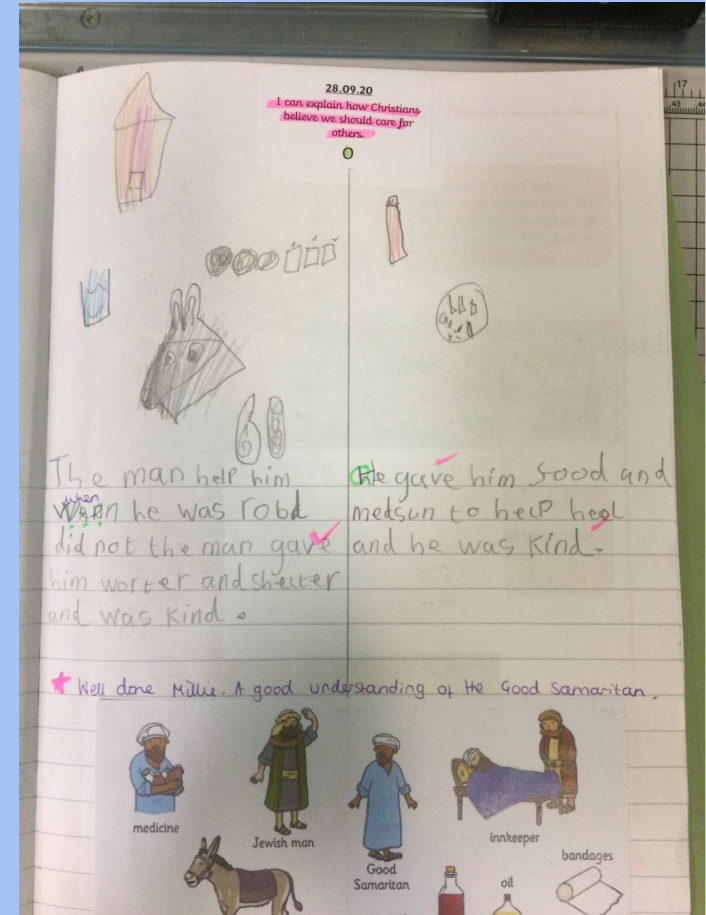 28.09.20
I can explain how Christians
believe we should care for
others.
The man help him
when
wen he was robd
did not the man gave
him worter and shelter
and was kind.
He gave him food and
medsun to help heel
and he was kind.
Well done Millie. A good understanding of the Good Samaritan.
medicine
Jewish man
Good
Samaritan
innkeeper
bandages
oil
17
43 44